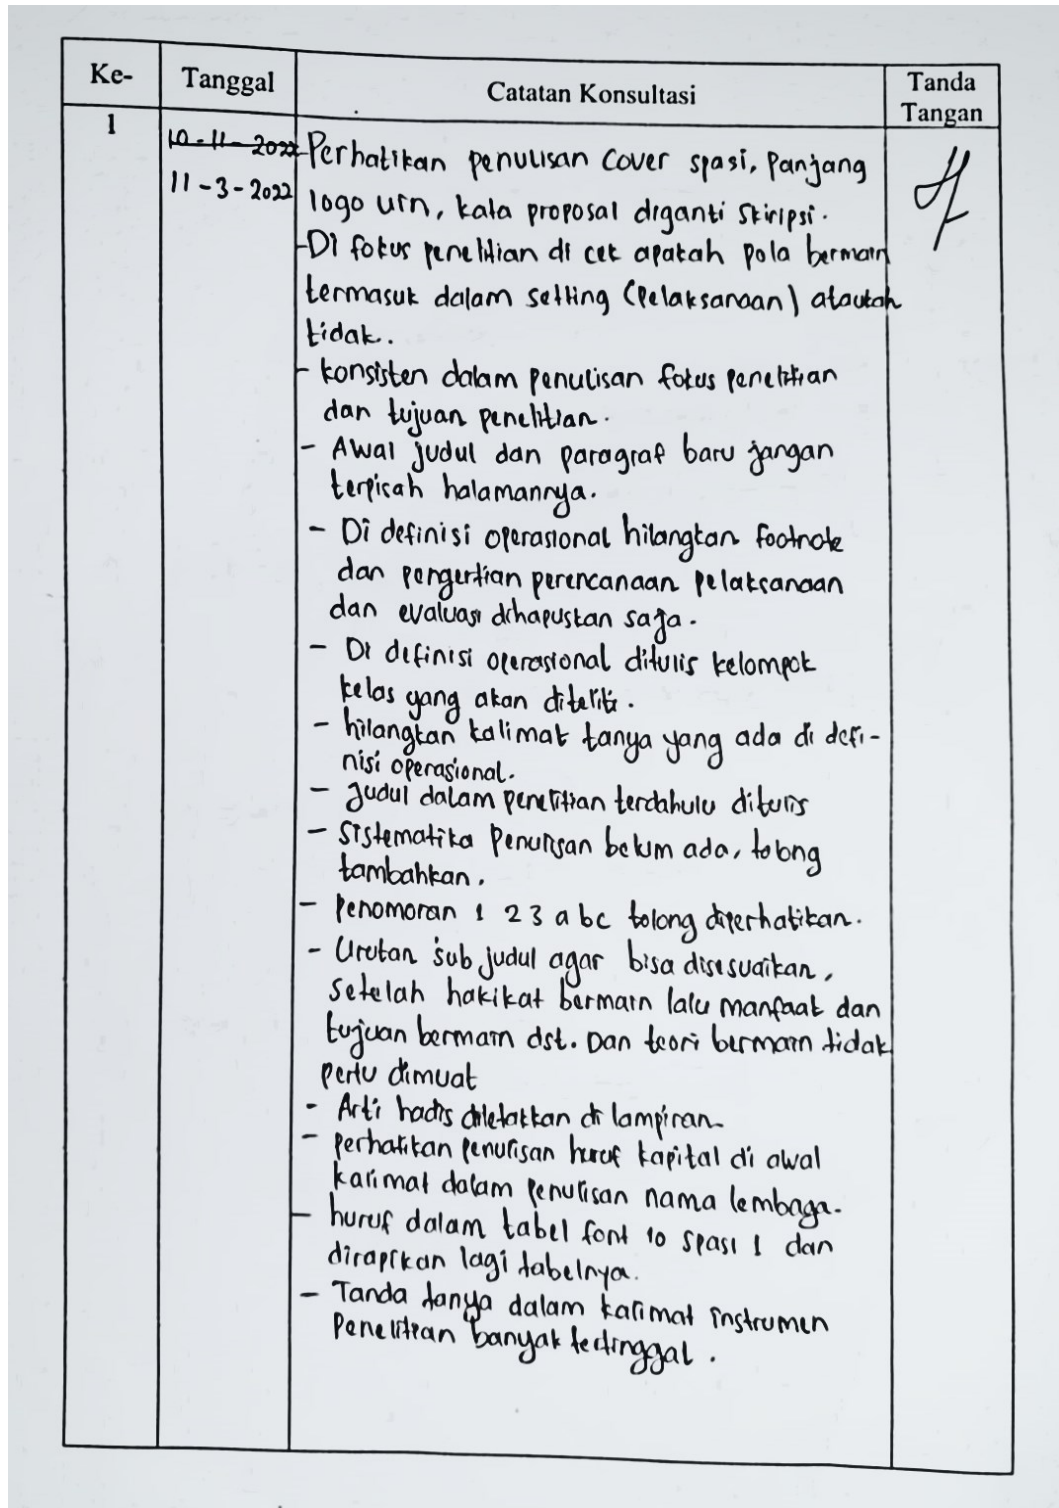 Ke-
Tanggal
Catatan Konsultasi
Tanda
Tangan
1
10-11-2022
11-3-2022
- Perhatikan penulisan cover spasi, Panjang
logo uin, kata proposal diganti skripsi.
- Di fokus penelitian di cek apakah pola bermain
termasuk dalam setting (Pelaksanaan) ataukah
tidak.
- konsisten dalam penulisan fokus penelitian
dan tujuan penelitian.
- Awal judul dan paragraf baru jangan
terpisah halamannya.
- Di definisi operasional hilangkan footnote
dan pengertian perencanaan pelaksanaan
dan evaluasi dihapuskan saja.
- Di definisi operasional ditulis kelompok
kelas yang akan diteliti.
- hilangkan kalimat tanya yang ada di defi-
nisi operasional.
- Judul dalam penelitian terdahulu ditulis
- Sistematika Penulisan belum ada, tolong
tambahkan.
- Penomoran 1 2 3 a b c tolong diperhatikan.
- Urutan sub judul agar bisa disesuaikan,
setelah hakikat bermain lalu manfaat dan
tujuan bermain dst. Dan teori bermain tidak
perlu dimuat
- Arti hadis diletakkan di lampiran.
- perhatikan penulisan huruf kapital di awal
kalimat dalam penulisan nama lembaga.
- huruf dalam tabel font 10 spasi 1 dan
dirapikan lagi tabelnya.
- Tanda tanya dalam kalimat instrumen
Penelitian banyak tertinggal.